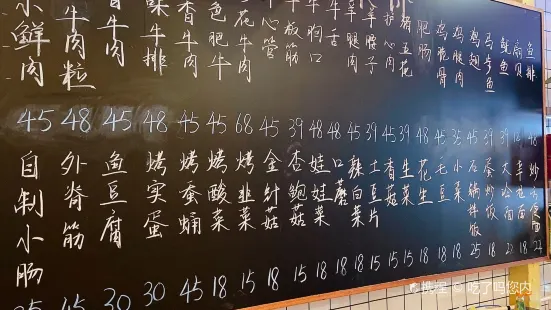 小鲜肉
牛肉粒
牛肉
牛排
香牛肉
色肥牛
花牛
心管
牛板筋
牛胸口
牛舌
羊腿肉
羊腰子
护心肉
猪五花
肥肠
鸡脆骨
鸡腿肉
鸡翅
马步鱼
鱿鱼
扇贝
鱼排
45 48 45 48 45 45 68 45 39 48 48 45 39 45 39 48 45 35 45 39 39 48
自制小肠
外脊筋
鱼豆腐
烤实蛋
烤蚕蛹
烤酸菜
烤韭菜
金针菇
杏鲍菇
娃娃菜
口蘑
辣白菜
土豆片
香菇
生菜
花生
毛豆
小菜
石锅拌饭
蛋炒饭
大冷面
45 30 30 45 18 15 18 15 18 18 18 18 15 15 15 18 18 18 25 18 22 18 27
吃了吗您内